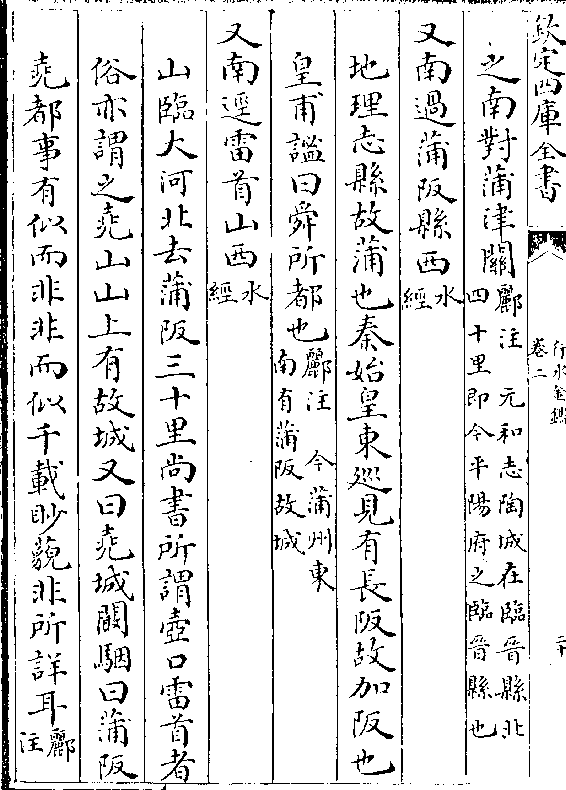 欽定四庫全書
行水金鑑
卷二
二十
之南對蒲津關酈注 元和志陶城在臨晉縣北四十里即今平陽府之臨晉縣也
又南過蒲阪縣西水經
地理志縣故蒲也秦始皇東巡見有長阪故加阪也
皇甫謐曰舜所都也酈注 今蒲州東南有蒲阪故城
又南逕雷首山西水經
山臨大河北去蒲阪三十里尚書所謂壺口雷首者
俗亦謂之堯山山上有故城又曰堯城闞駰曰蒲阪
堯都事有似而非非而似千載眇藐非所詳耳酈注